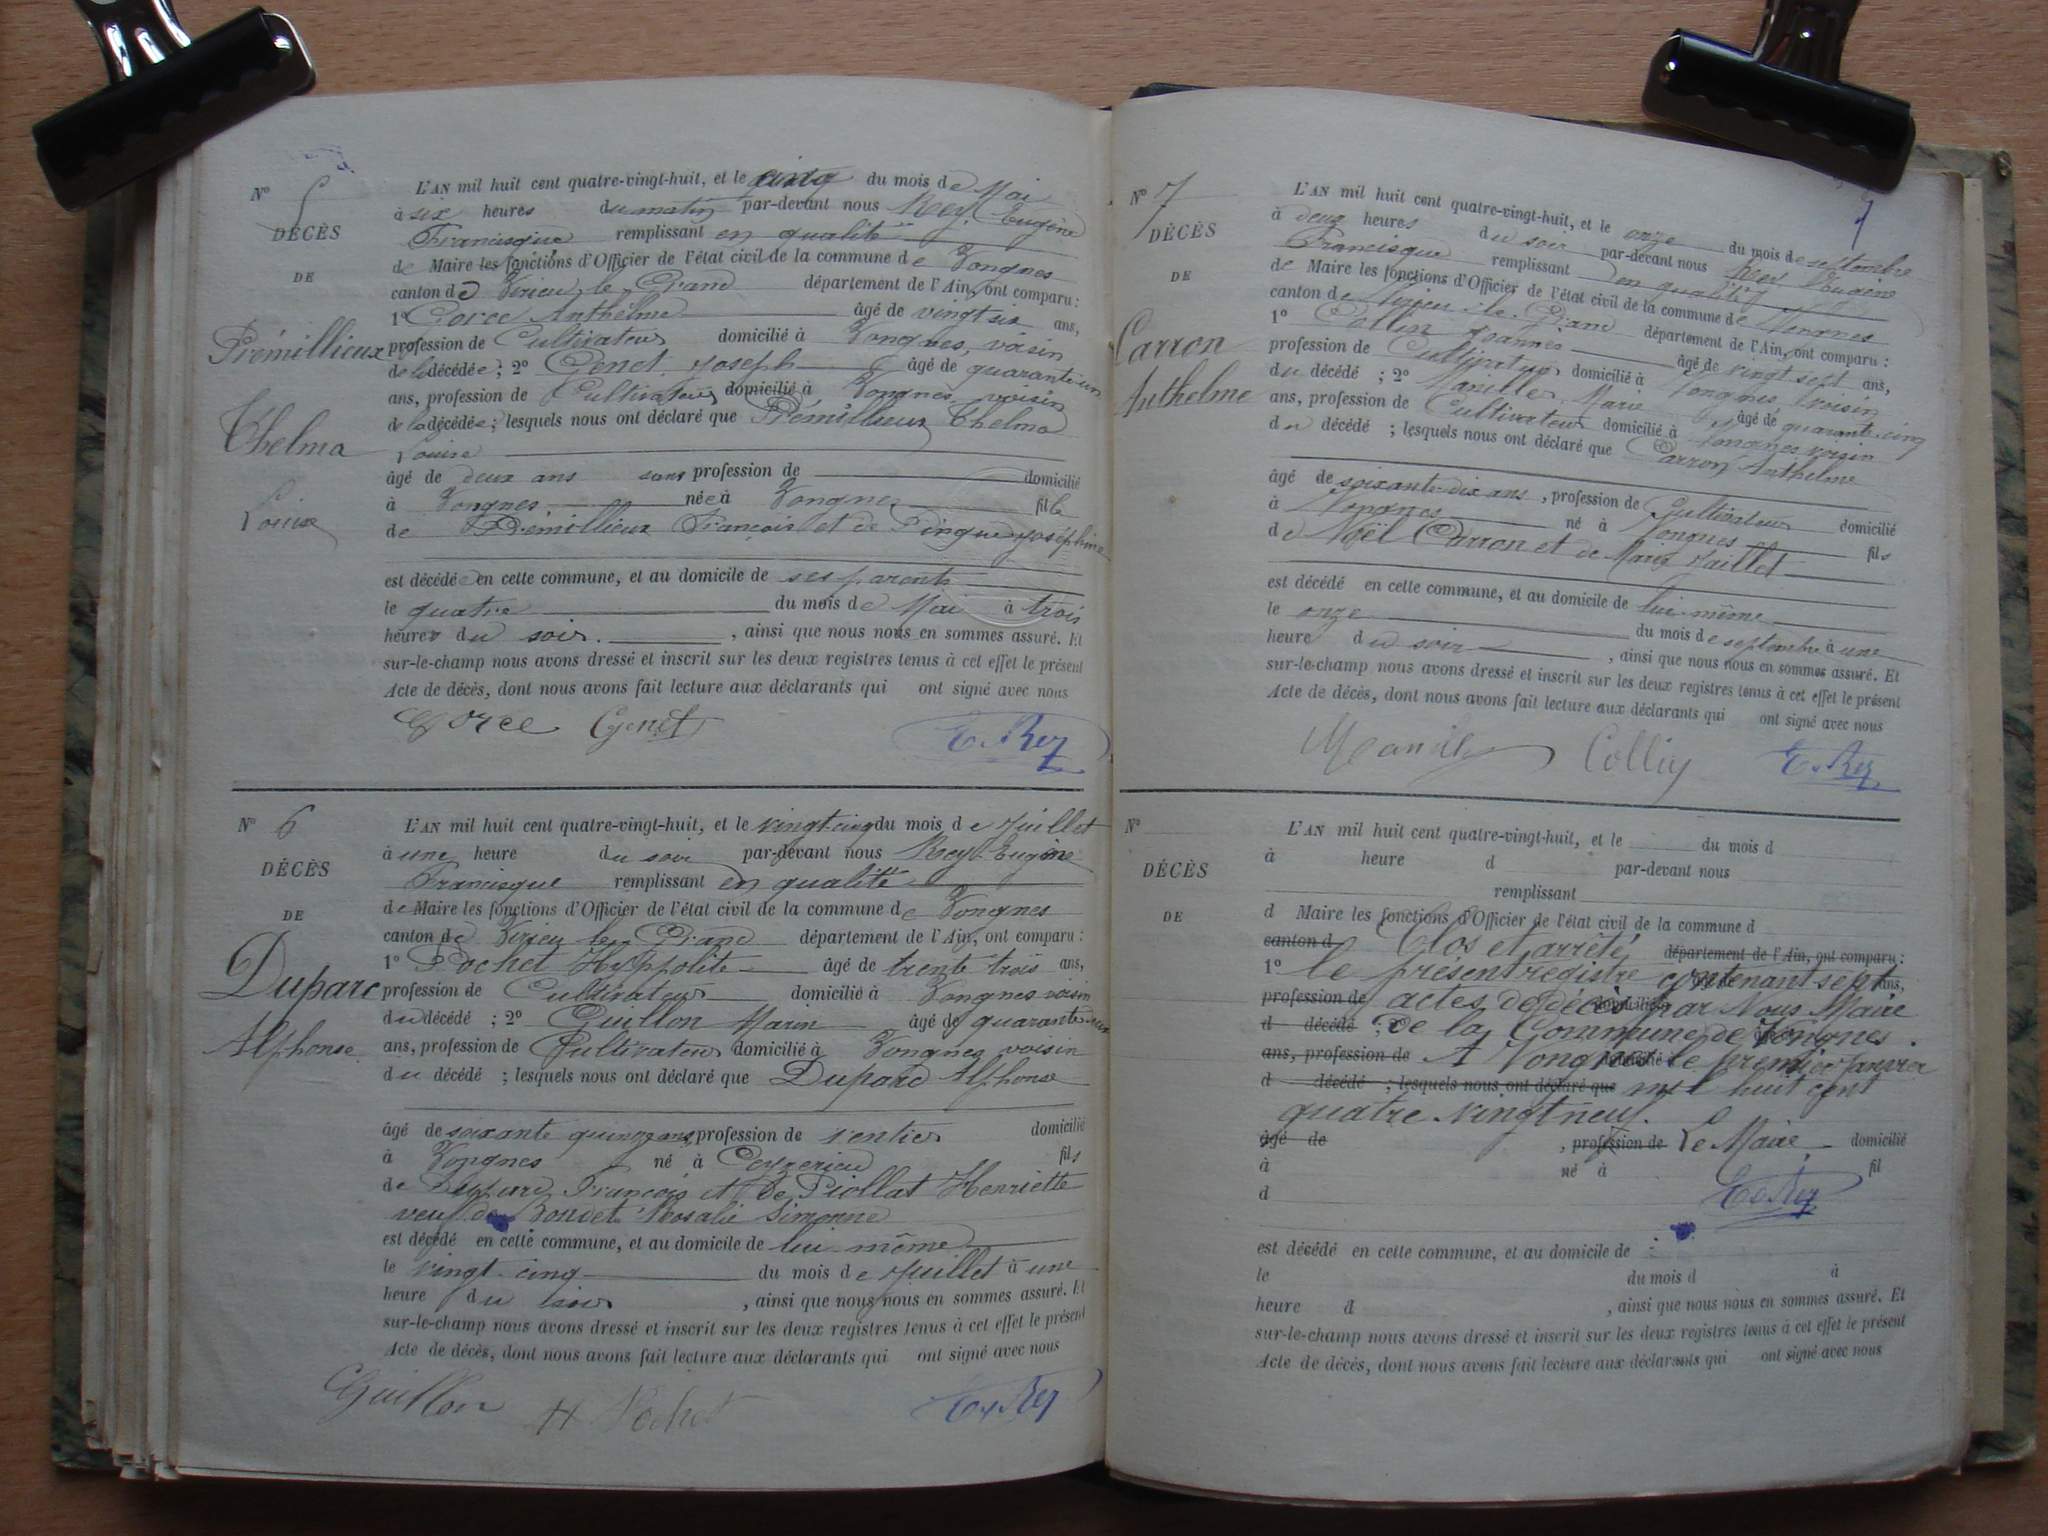 N° 5
DÉCÈS
DE
Prémillieux
Thelma
Louise
L'AN mil huit cent quatre-vingt-huit, et le cinq du mois de Mai
à six heures du matin par-devant nous Rey Eugène
Francisque remplissant en qualité
de Maire les fonctions d'Officier de l'état civil de la commune de Vongnes
canton de Virieu le Grand département de l'Ain, ont comparu :
1° Gorce Anthelme âgé de vingt six ans,
profession de Cultivateur domicilié à Vongnes, voisin
de la décédée ; 2° Genet Joseph âgé de quarante un
ans, profession de Cultivateur domicilié à Vongnes, voisin
de la décédée ; lesquels nous ont déclaré que Prémillieux Thelma
Louise
âgé de deux ans sans profession de domicilié
à Vongnes née à Vongnes fille
de Prémillieux François et de Pingue Joséphine
est décédée en cette commune, et au domicile de ses parents
le quatre du mois de Mai à trois
heures du soir. , ainsi que nous nous en sommes assuré. Et
sur-le-champ nous avons dressé et inscrit sur les deux registres tenus à cet effet le présent
Acte de décès, dont nous avons fait lecture aux déclarants qui ont signé avec nous
Gorce Genet E. Rey
N° 6
DÉCÈS
DE
Duparc
Alphonse.
L'AN mil huit cent quatre-vingt-huit, et le vingt-cinq du mois de Juillet
à une heure du soir par-devant nous Rey Eugène
Francisque remplissant en qualité
de Maire les fonctions d'Officier de l'état civil de la commune de Vongnes
canton de Virieu le Grand département de l'Ain, ont comparu :
1° Pochet Hyppolite âgé de trente trois ans,
profession de Cultivateur domicilié à Vongnes voisin
du décédé ; 2° Guillon Marin âgé de quarante
ans, profession de Cultivateur domicilié à Vongnes, voisin
du décédé ; lesquels nous ont déclaré que Duparc Alphonse
âgé de soixante quinze ans, profession de rentier domicilié
à Vongnes né à Ceyzerieu fils
de Duparc François et de Piollat Henriette
veuf de Bondet Rosalie Simonne
est décédé en cette commune, et au domicile de lui même
le vingt-cinq du mois de Juillet à une
heure du soir , ainsi que nous nous en sommes assuré. Et
sur-le-champ nous avons dressé et inscrit sur les deux registres tenus à cet effet le présent
Acte de décès, dont nous avons fait lecture aux déclarants qui ont signé avec nous
Guillon H Pochet E. Rey
7
N° 7
DÉCÈS
DE
Carron
Anthelme
L'AN mil huit cent quatre-vingt-huit, et le onze du mois de septembre
à deux heures du soir par-devant nous Rey Eugène
Francisque remplissant en qualité
de Maire les fonctions d'Officier de l'état civil de la commune de Vongnes
canton de Virieu-le-Grand département de l'Ain, ont comparu :
1° Collin Joannès âgé de vingt sept ans,
profession de Cultivateur domicilié à Vongnes, voisin
du décédé ; 2° Marie âgé de quarante-cinq
ans, profession de Cultivateur domicilié à Vongnes voisin
du décédé ; lesquels nous ont déclaré que Carron Anthelme
âgé de soixante-dix ans, profession de Cultivateur domicilié
à Vongnes né à Vongnes fils
de Noël Carron et de Marie Jaillet
est décédé en cette commune, et au domicile de lui-même
le onze du mois de septembre à une
heure du soir , ainsi que nous nous en sommes assuré. Et
sur-le-champ nous avons dressé et inscrit sur les deux registres tenus à cet effet le présent
Acte de décès, dont nous avons fait lecture aux déclarants qui ont signé avec nous
Collin E. Rey
N°
DÉCÈS
DE
L'AN mil huit cent quatre-vingt-huit, et le du mois d
à heure d par-devant nous
remplissant
d Maire les fonctions d'Officier de l'état civil de la commune d
canton d Clos et arrêté département de l'Ain, ont comparu :
1° le présent registre contenant sept ans,
profession de actes de décès par Nous Maire
d décédé ; 2° de la Commune de Vongnes.
ans, profession de A Vongnes le premier Janvier
d décédé ; lesquels nous ont déclaré que mil huit cent
quatre vingt neuf.
âgé de , profession de Le Maire, domicilié
à né à fil
d E. Rey
est décédé en cette commune, et au domicile de
le du mois d à
heure d , ainsi que nous nous en sommes assuré. Et
sur-le-champ nous avons dressé et inscrit sur les deux registres tenus à cet effet le présent
Acte de décès, dont nous avons fait lecture aux déclarants qui ont signé avec nous